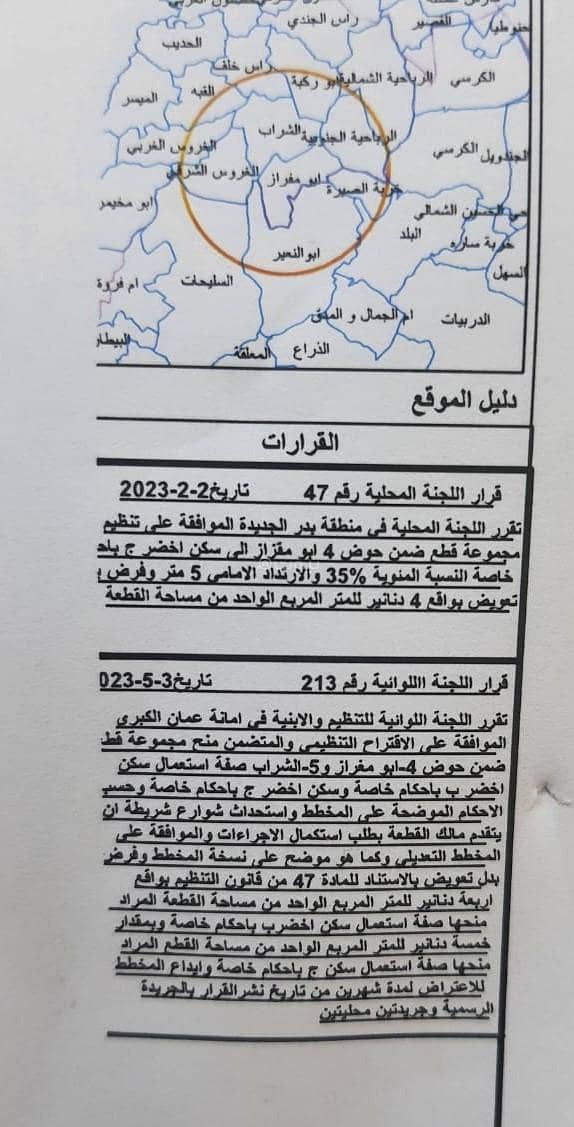 راس الجندي
القصير
الحديب
راس خلف
الكرسي
الرباحية الشمالية
ابو ركبة
القبه
الميسر
الشراب
الرباحية الجنوبية
الغروس الغربي
الكرسي
الجندويل
الغروس الشرقي
ابو مغراز
خربة الصبرة
ابو مخيمر
حي الحسين الشمالي
البلد
خربة ساره
ابو النعير
السهل
السليحات
ام فروة
ام الجمال و المدق
الدربيات
البيطار
المعلقة
الذراع
دليل الموقع
القرارات
قرار اللجنة المحلية رقم 47 تاريخ2-2-2023
تقرر اللجنة المحلية في منطقة بدر الجديدة الموافقة على تنظيم
مجموعة قطع ضمن حوض 4 ابو مغزاز الى سكن اخضر ج باح
خاصة النسبة المئوية %35 والارتداد الامامي 5 متر وفرض ب
تعويض بواقع 4 دنانير للمتر المربع الواحد من مساحة القطعة
قرار اللجنة االلوائية رقم 213 تاريخ3-5-023
تقرر اللجنة اللوائية للتنظيم والابنية في امانة عمان الكبرى
الموافقة على الاقتراح التنظيمي والمتضمن منح مجموعة قط
ضمن حوض 4-ابو مغراز و5-الشراب صفة استعمال سكن
اخضر ب باحكام خاصة وسكن اخضر ج باحكام خاصة وحسب
الاحكام الموضحة على المخطط واستحداث شوارع شريطة ان
يتقدم مالك القطعة بطلب استكمال الاجراءات والموافقة على
المخطط التعديلي وكما هو موضح على نسخة المخطط وفرض
بدل تعويض بالاستناد للمادة 47 من قانون التنظيم بواقع
اربعة دنانير للمتر المربع الواحد من مساحة القطعة المراد
منحها صفة استعمال سكن اخضرب باحكام خاصة وبمقدار
خمسة دنانير للمتر المربع الواحد من مساحة القطع المراد
منحها صفة استعمال سكن ج باحكام خاصة وايداع المخطط
للاعتراض لمدة شهرين من تاريخ نشرالقرار بالجريدة
الرسمية وجريدتين محليتين